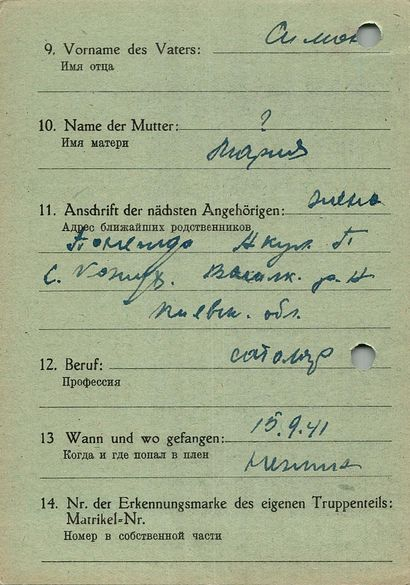 9. Vorname des Vaters: Симон
Имя отца
10. Name der Mutter: ?
Имя матери Мария
11. Anschrift der nächsten Angehörigen: жена
Адрес ближайших родственников
С. Васильк. р-н
Киевск. обл.
12. Beruf:
Профессия
13 Wann und wo gefangen: 15.9.41
Когда и где попал в плен
14. Nr. der Erkennungsmarke des eigenen Truppenteils:
Matrikel-Nr.
Номер в собственной части